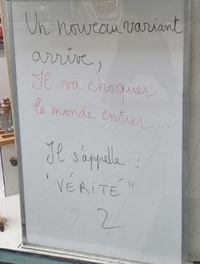 Un nouveau variant
arrive,
Il va choquer
le monde entier...
Il s'appelle :
"VÉRITÉ"
2